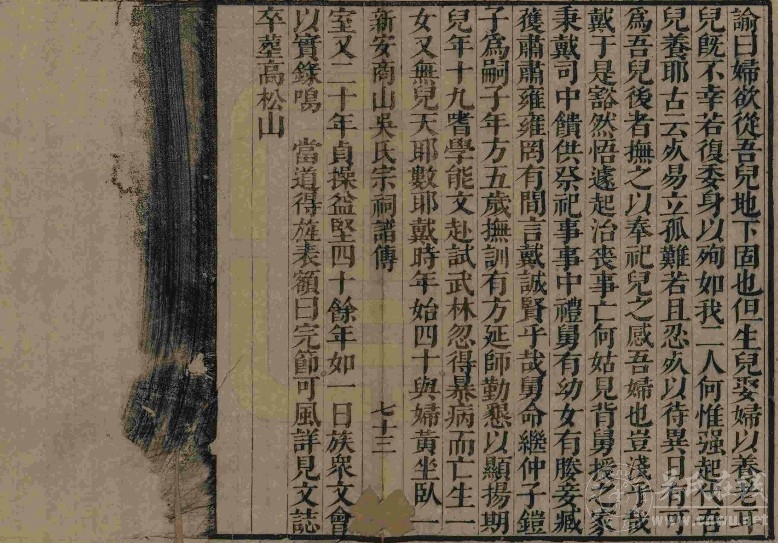 諭曰婦欲從吾兒地下固也但生兒娶婦以養老耳
兒旣不幸若復委身以殉如我二人何惟强起代吾
兒養耶古云死易立孤難若且忍死以待異日有可
爲吾兒後者撫之以奉祀兒之感吾婦也豈淺乎哉
戴于是豁然悟遽起治喪事亡何姑見背舅授之家
秉戴司中饋供祭祀事事中禮舅有幼女有媵妾臧
獲肅肅雍雍罔有間言戴誠賢乎哉舅命繼仲子鎧
子爲嗣子年方五歲撫訓有方延師勤懇以顯揚期
兒年十九嗜學能文赴試武林忽得暴病而亡生一
女又無兒天耶數耶戴時年始四十與婦黃坐臥一
新安商山吳氏宗祠譜傳 七十三
室又二十年貞操益堅四十餘年如一日族衆文會
以實錄鳴 當道得旌表額曰完節可風詳見文誌
卒塟高松山